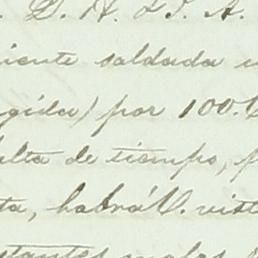 D. H. & J. A.
iente saldada
gida) por 100.
lta de tiempo,
ta, habrá V. vist